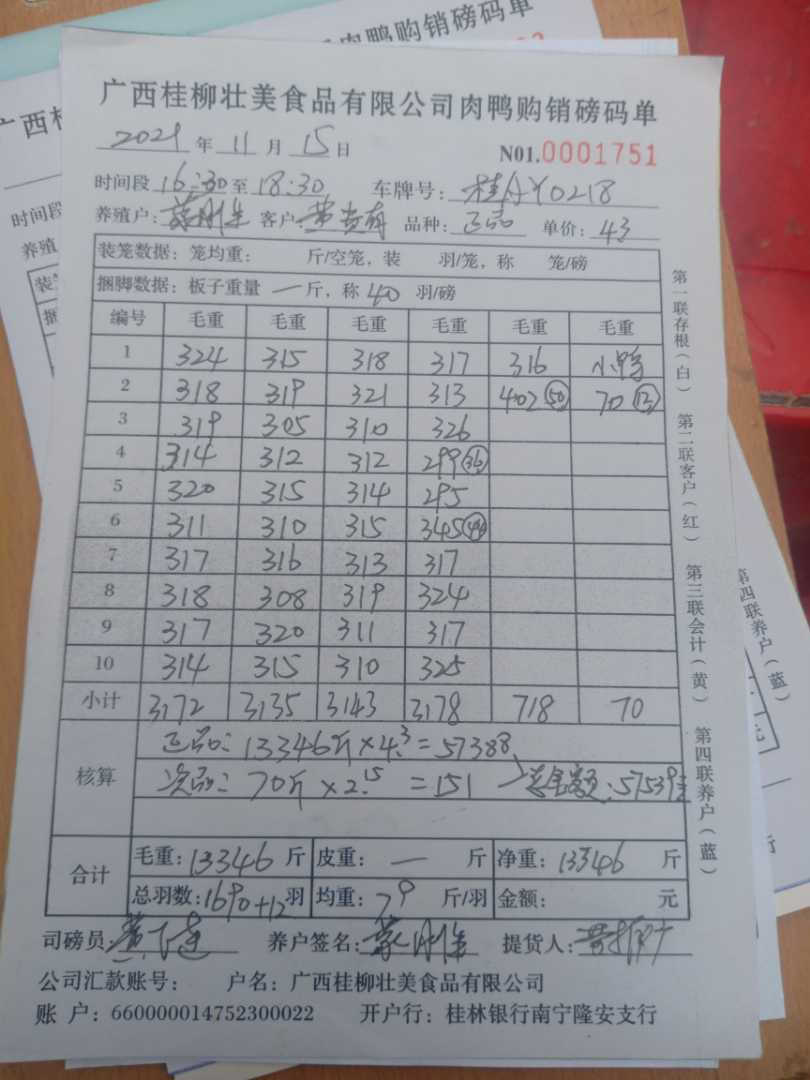 肉鸭购销磅码单
广西桂
时间段
养殖
广西桂柳壮美食品有限公司肉鸭购销磅码单
2021年 11月 15日 N01.0001751
时间段 16:30 至 18:30 车牌号: 桂AY0218
养殖户: 客户: 黄 品种: 正品 单价: 43
装笼数据: 笼均重: 斤/空笼, 装 羽/笼, 称 笼/磅
捆脚数据: 板子重量 一 斤, 称 40 羽/磅
编号 毛重 毛重 毛重 毛重 毛重 毛重
1 324 315 318 317 316 小鸭
2 318 319 321 313 402 50 70 12
3 319 305 310 326
4 314 312 312 299 36
5 320 315 314 295
6 311 310 315 345
7 317 316 313 317
8 318 308 319 324
9 317 320 311 317
10 314 315 310 325
小计 3172 3135 3143 3178 718 70
核算
正品: 13346斤×4.3=57388
次品: 70斤×2.15=151 总金额: 57539元
合计
毛重: 13346 斤 皮重: 一 斤 净重: 13346 斤
总羽数: 1690+12 羽 均重: 7.9 斤/羽 金额: 元
司磅员: 黄 养户签名: 提货人:
公司汇款账号: 户名: 广西桂柳壮美食品有限公司
账 户: 660000014752300022 开户行: 桂林银行南宁隆安支行
第一联存根(白) 第二联客户(红) 第三联会计(黄) 第四联养户(蓝)
第四联养户(蓝)
元
行